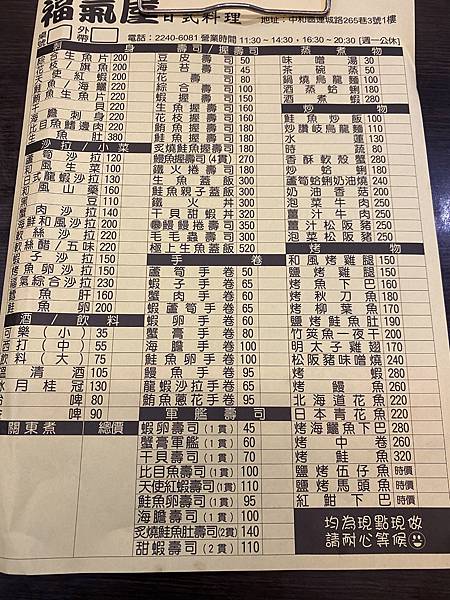 福氣屋日式料理
地址：中和區連城路265巷3號1樓
外帶
電話：2240-6081 營業時間 11:30~14:30．16:30~20:30 [週一公休]
生魚片 200
旗魚 200
天使紅蝦 220
海鱺 220
生魚片 220
刺身 220
比目魚鰭邊肉 220
魚肚 380
沙拉/小菜
蘆筍沙拉 120
和風生菜 100
日式龍蝦沙拉 130
和風山藥 160
豆 110
蟹肉沙拉 140
海鮮和風沙拉 220
軟絲沙拉 220
軟絲醋/五味 220
蝦子沙拉 150
烤魚卵沙拉 150
福氣綜合沙拉 230
魚肝 160
魚卵 200
酒/飲料
可樂(小) 35
西打(中) 55
飲料(大) 75
清酒 105
冰月桂冠 130
台啤 80
啤 90
關東煮 總價
壽司/握壽司
豆皮壽司 50
海苔壽司 50
花壽司 80
綜合壽司 100
蝦握壽司 160
生魚握壽司 160
花枝握壽司 160
鮪魚握壽司 180
鮭魚握壽司 180
炙燒鮭魚壽司 180
鰻魚握壽司(4貫) 270
鐵火捲壽司 180
生魚蓋飯 300
鮭魚親子蓋飯 300
鐵火丼 300
干貝甜蝦丼 320
鰻鰻捲壽司 350
毛毛蟲壽司 300
極上生魚蓋飯 520
手卷
蘆筍手卷 50
蝦子手卷 65
蟹肉手卷 60
蝦蘆筍手卷 65
蝦卵手卷 60
蟹膏手卷 60
海膽手卷 100
鮭魚卵手卷 100
鰻魚手卷 95
龍蝦沙拉手卷 65
鮪魚蔥花手卷 70
軍艦壽司
蝦卵壽司(1貫) 45
蟹膏軍艦(1貫) 60
干貝壽司(1貫) 70
比目魚壽司(1貫) 100
天使紅蝦壽司(1貫) 110
鮭魚卵壽司(1貫) 95
海膽壽司(1貫) 100
炙燒鮭魚肚壽司(2貫) 140
甜蝦壽司(2貫) 110
蒸煮物
味噌湯 30
茶碗蒸 50
鍋燒烏龍麵 100
酒蒸蛤蜊 180
酒煮蝦 280
炒物
鮭魚炒飯 100
炒讚岐烏龍麵 110
水蓮 130
時蔬 80
香酥軟殼蟹 280
炒蛤蜊 180
蘆筍蛤蜊奶油燒 240
奶油香菇 200
泡菜牛肉 240
薑汁牛肉 240
薑汁松阪豬 250
泡菜松阪豬 250
烤物
和風烤雞腿 150
鹽烤雞腿 150
烤魚下巴 160
烤秋刀魚 180
烤柳葉魚 180
鹽烤鮭魚肚 190
竹筴魚一夜干 200
明太子雞翅 170
松阪豬味噌燒 240
烤蝦 280
烤鰻魚 270
北海道花魚 220
日本青花魚 220
烤海鱺魚下巴 280
烤中卷 260
烤鮭魚 320
鹽烤伍仔魚 時價
鹽烤馬頭魚 時價
紅魽下巴 時價
均為現點現做
請耐心等候